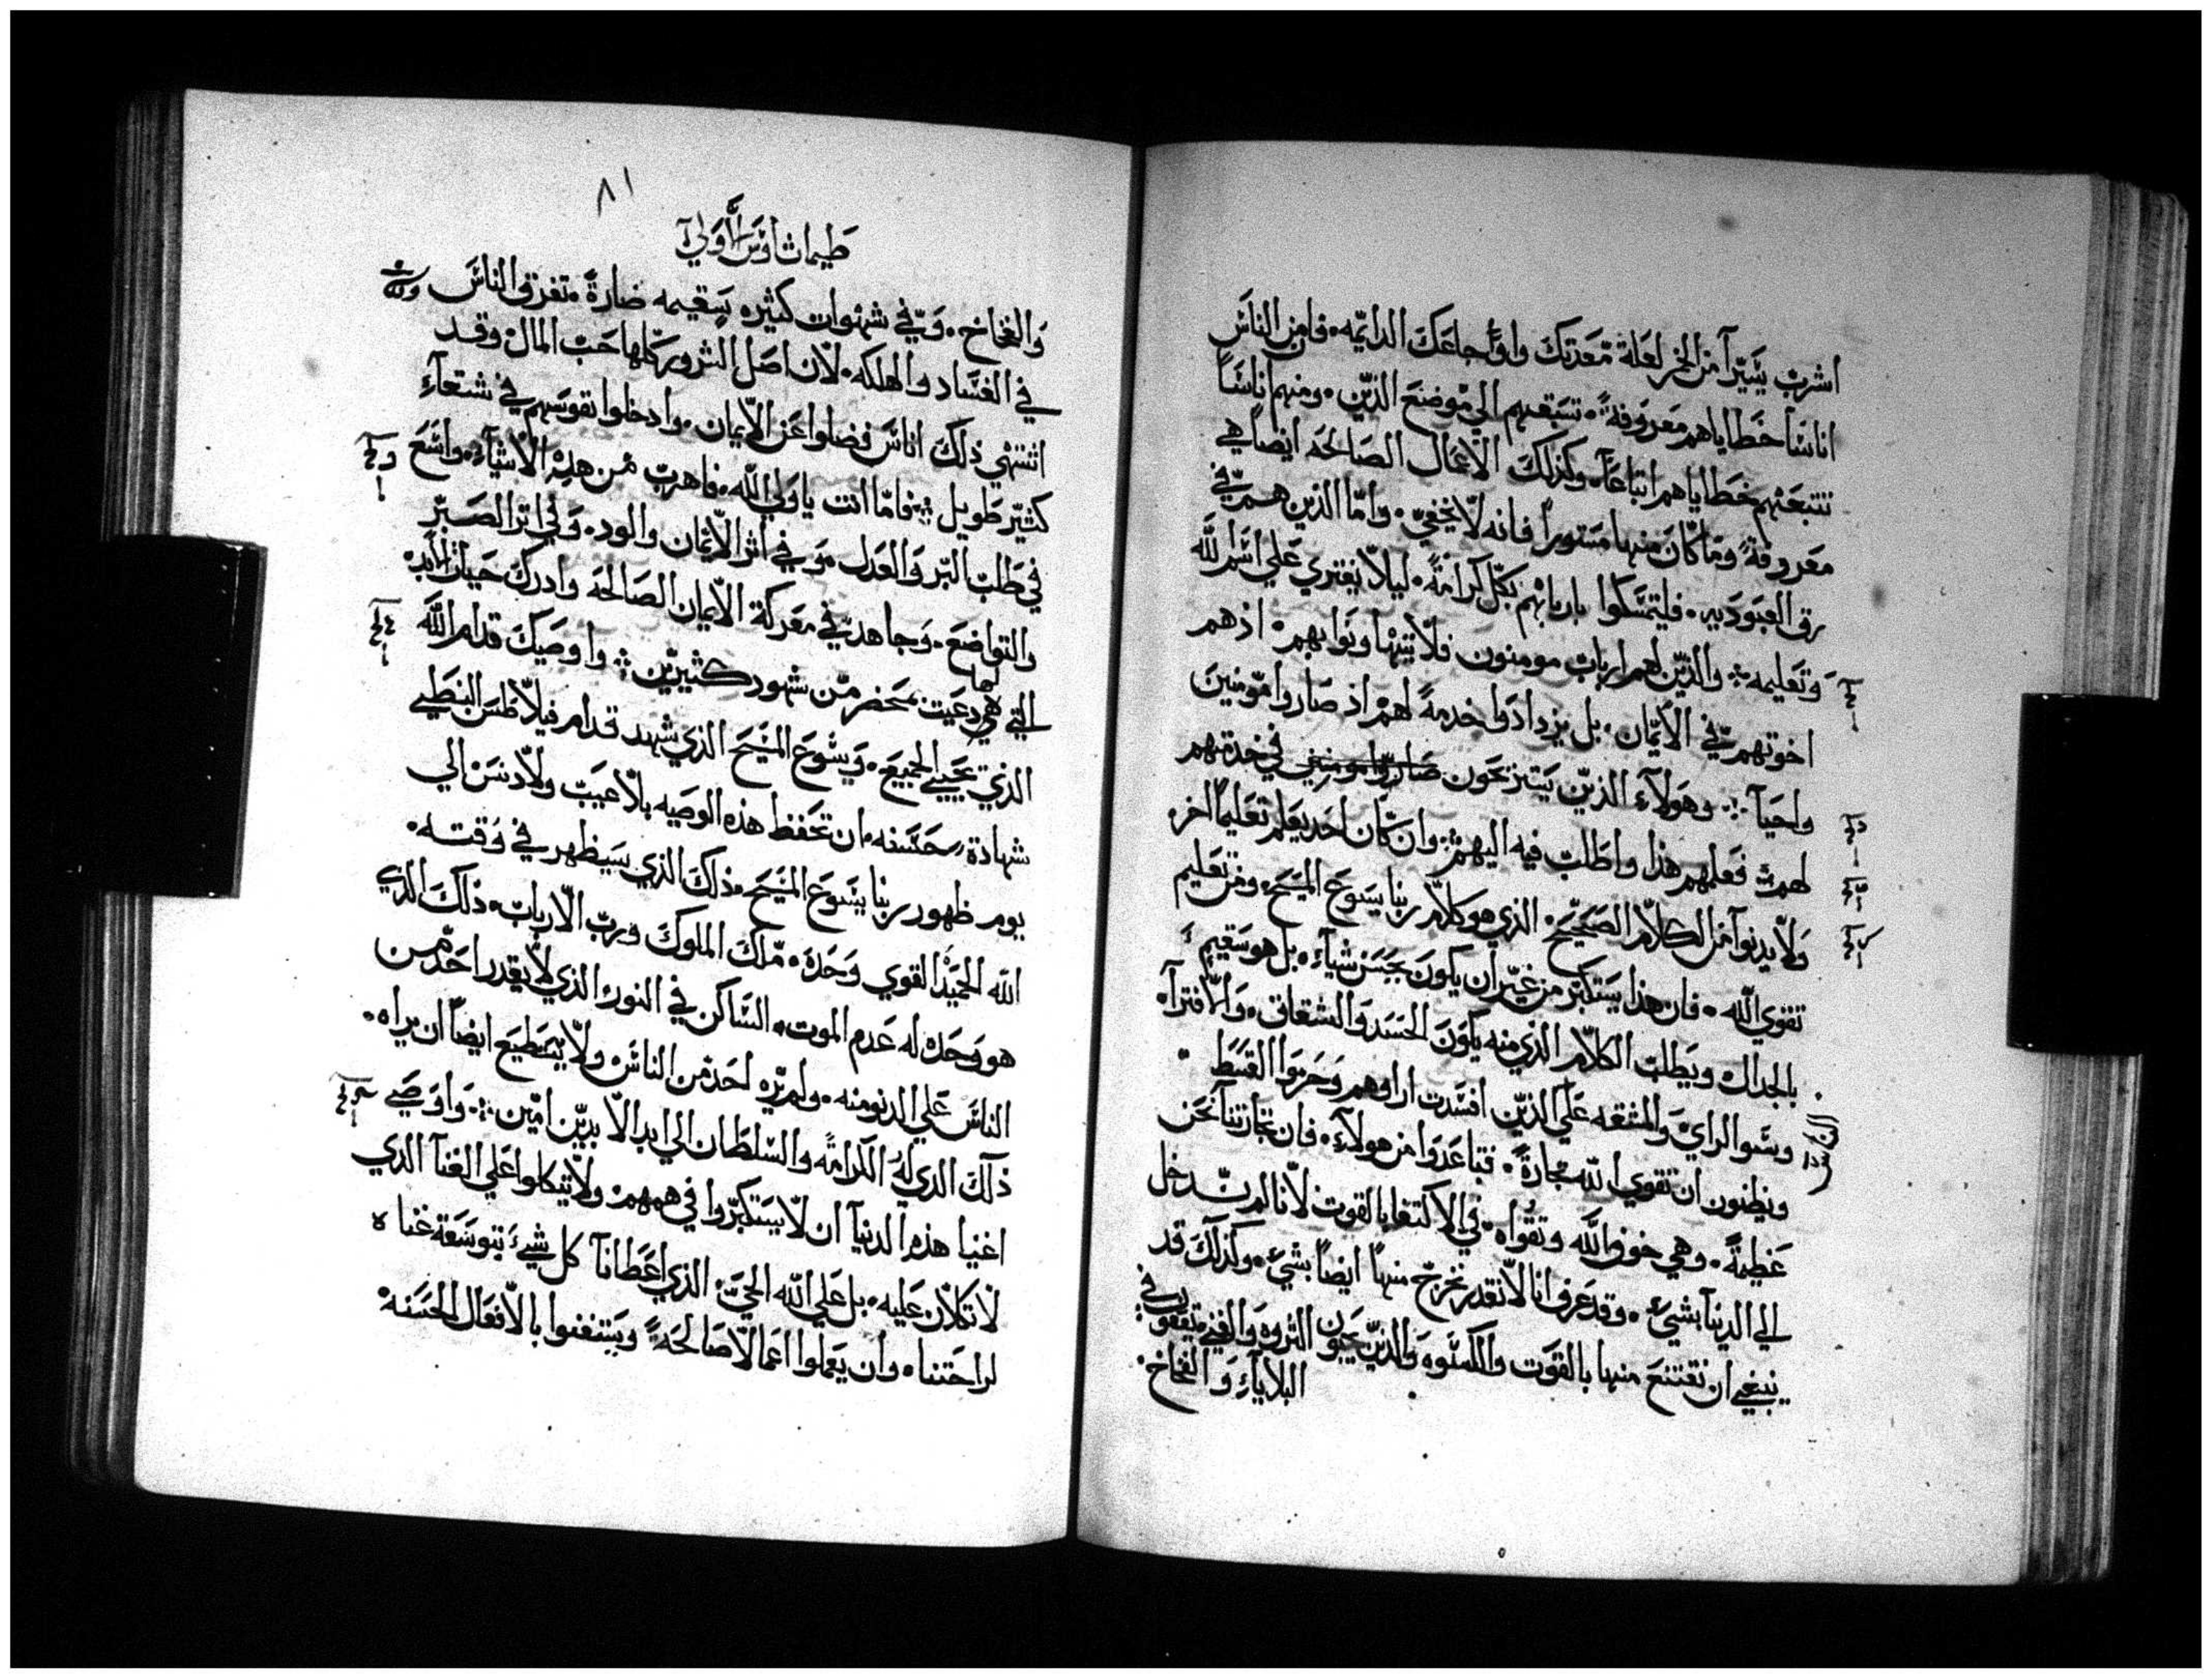 اشرب يسيرًا من الخمر لعلة معدتك واوجاعك الدايمه. فامن الناس
اناسًا خطاياهم معروفة. تسبقهم الي موضع الدين. ومنهم اناسًا
تتبعهم خطاياهم اتباعًا. وكذلك الاعمال الصالحه ايضًا هي
معروفة وما كان منها مستورًا فانه لا يخفي. واما الذين هم في
رق العبوديه. فليتمسكوا باربابهم بكل كرامة. ليلا يفتري علي اسم الله
وتعليمه ❖ والذين لهم ارباب مومنون فلا يتهاونوا بهم. اذ هم
اخوتهم في الايمان. بل يزدادوا خدمةً لهم اذ صاروا مومنين
واحيآ ❖ وهولآء الذين يتيزحون صاروا مومنين في خدمتهم
لهم فعلمهم هذا واطلب فيه اليهم ❖ وان كان احد يعلم تعليمًا اخر
ولا يدنوا من الكلام الصحيح. الذي هو كلام ربنا يسوع المسيح. ومن تعليم
تقوي الله. فان هذا يستكبر من غير ان يكون يحسن شيآء. بل هو سقيم
بالجدال ويطلب الكلام الذي منه يكون الحسد والشقاق. والافترآ.
وسو الراي والمشقه علي الذين افسدت اراوهم وحرموا القسط
ويظنون ان تقوي الله تجارة. فتباعدوا من هولآء. فان تجارتنا نحن
عظيمة. وهي خوف الله وتقواه. في الاكتفا بالقوت لانا لم ندخل
الي الدنيا بشي. وقد عرف انا لا نقدر نخرج منها ايضًا بشي. وكذلك قد
ينبغي ان نقتنع منها بالقوت والكسوه والذين يحبون الثروه والغني يقعون في
البلايآء والفخاخ.
٨١
طيماثاوس الاولي
والفخاخ. وفي شهوات كثيره سقيمه ضارة. تغرق الناس
في الفساد والهلكه. لان اصل الشرور كلها حب المال وقد
اشتهي ذلك اناس فضلوا عن الايمان. وادخلوا نفوسهم في شقآء
كثير طويل ❖ فاما انت يا ولي الله. فاهرب من هذه الاشيآء. واسع
في طلب البر والعدل. وفي اثر الايمان والود. وفي اثر الصبر
والتواضع. وجاهد في معركة الايمان الصالحه وادرك حياة الابد
التي لها دعيت بمحضر من شهود كثيرين ❖ واوصيك قدام الله
الذي يحيي الجميع. ويسوع المسيح الذي شهد قدام فيلاطس النبطي
شهادة حسنه. ان تحفظ هذه الوصيه بلا عيب ولا دنس الي
يوم ظهور ربنا يسوع المسيح. ذلك الذي سيظهر في وقته.
الله الحميد القوي وحده. ملك الملوك ورب الارباب. ذلك الذي
هو وحده له عدم الموت. الساكن في النور الذي لا يقدر احد من
الناس علي الدنو منه. ولم يره احد من الناس ولا يستطيع ايضًا ان يراه.
ذلك الذي له الكرامه والسلطان الي ابد الابدين امين ❖ واوصي
اغنيا هذه الدنيا ان لا يستكبروا في هممهم. ولا يتكلوا علي الغنآ الذي
لا تكلان عليه. بل علي الله الحي. الذي اعطانا كل شيء بتوسعة غناه
لراحتنا. وان يعملوا اعمالا صالحة. ويستغنوا بالافعال الحسنه